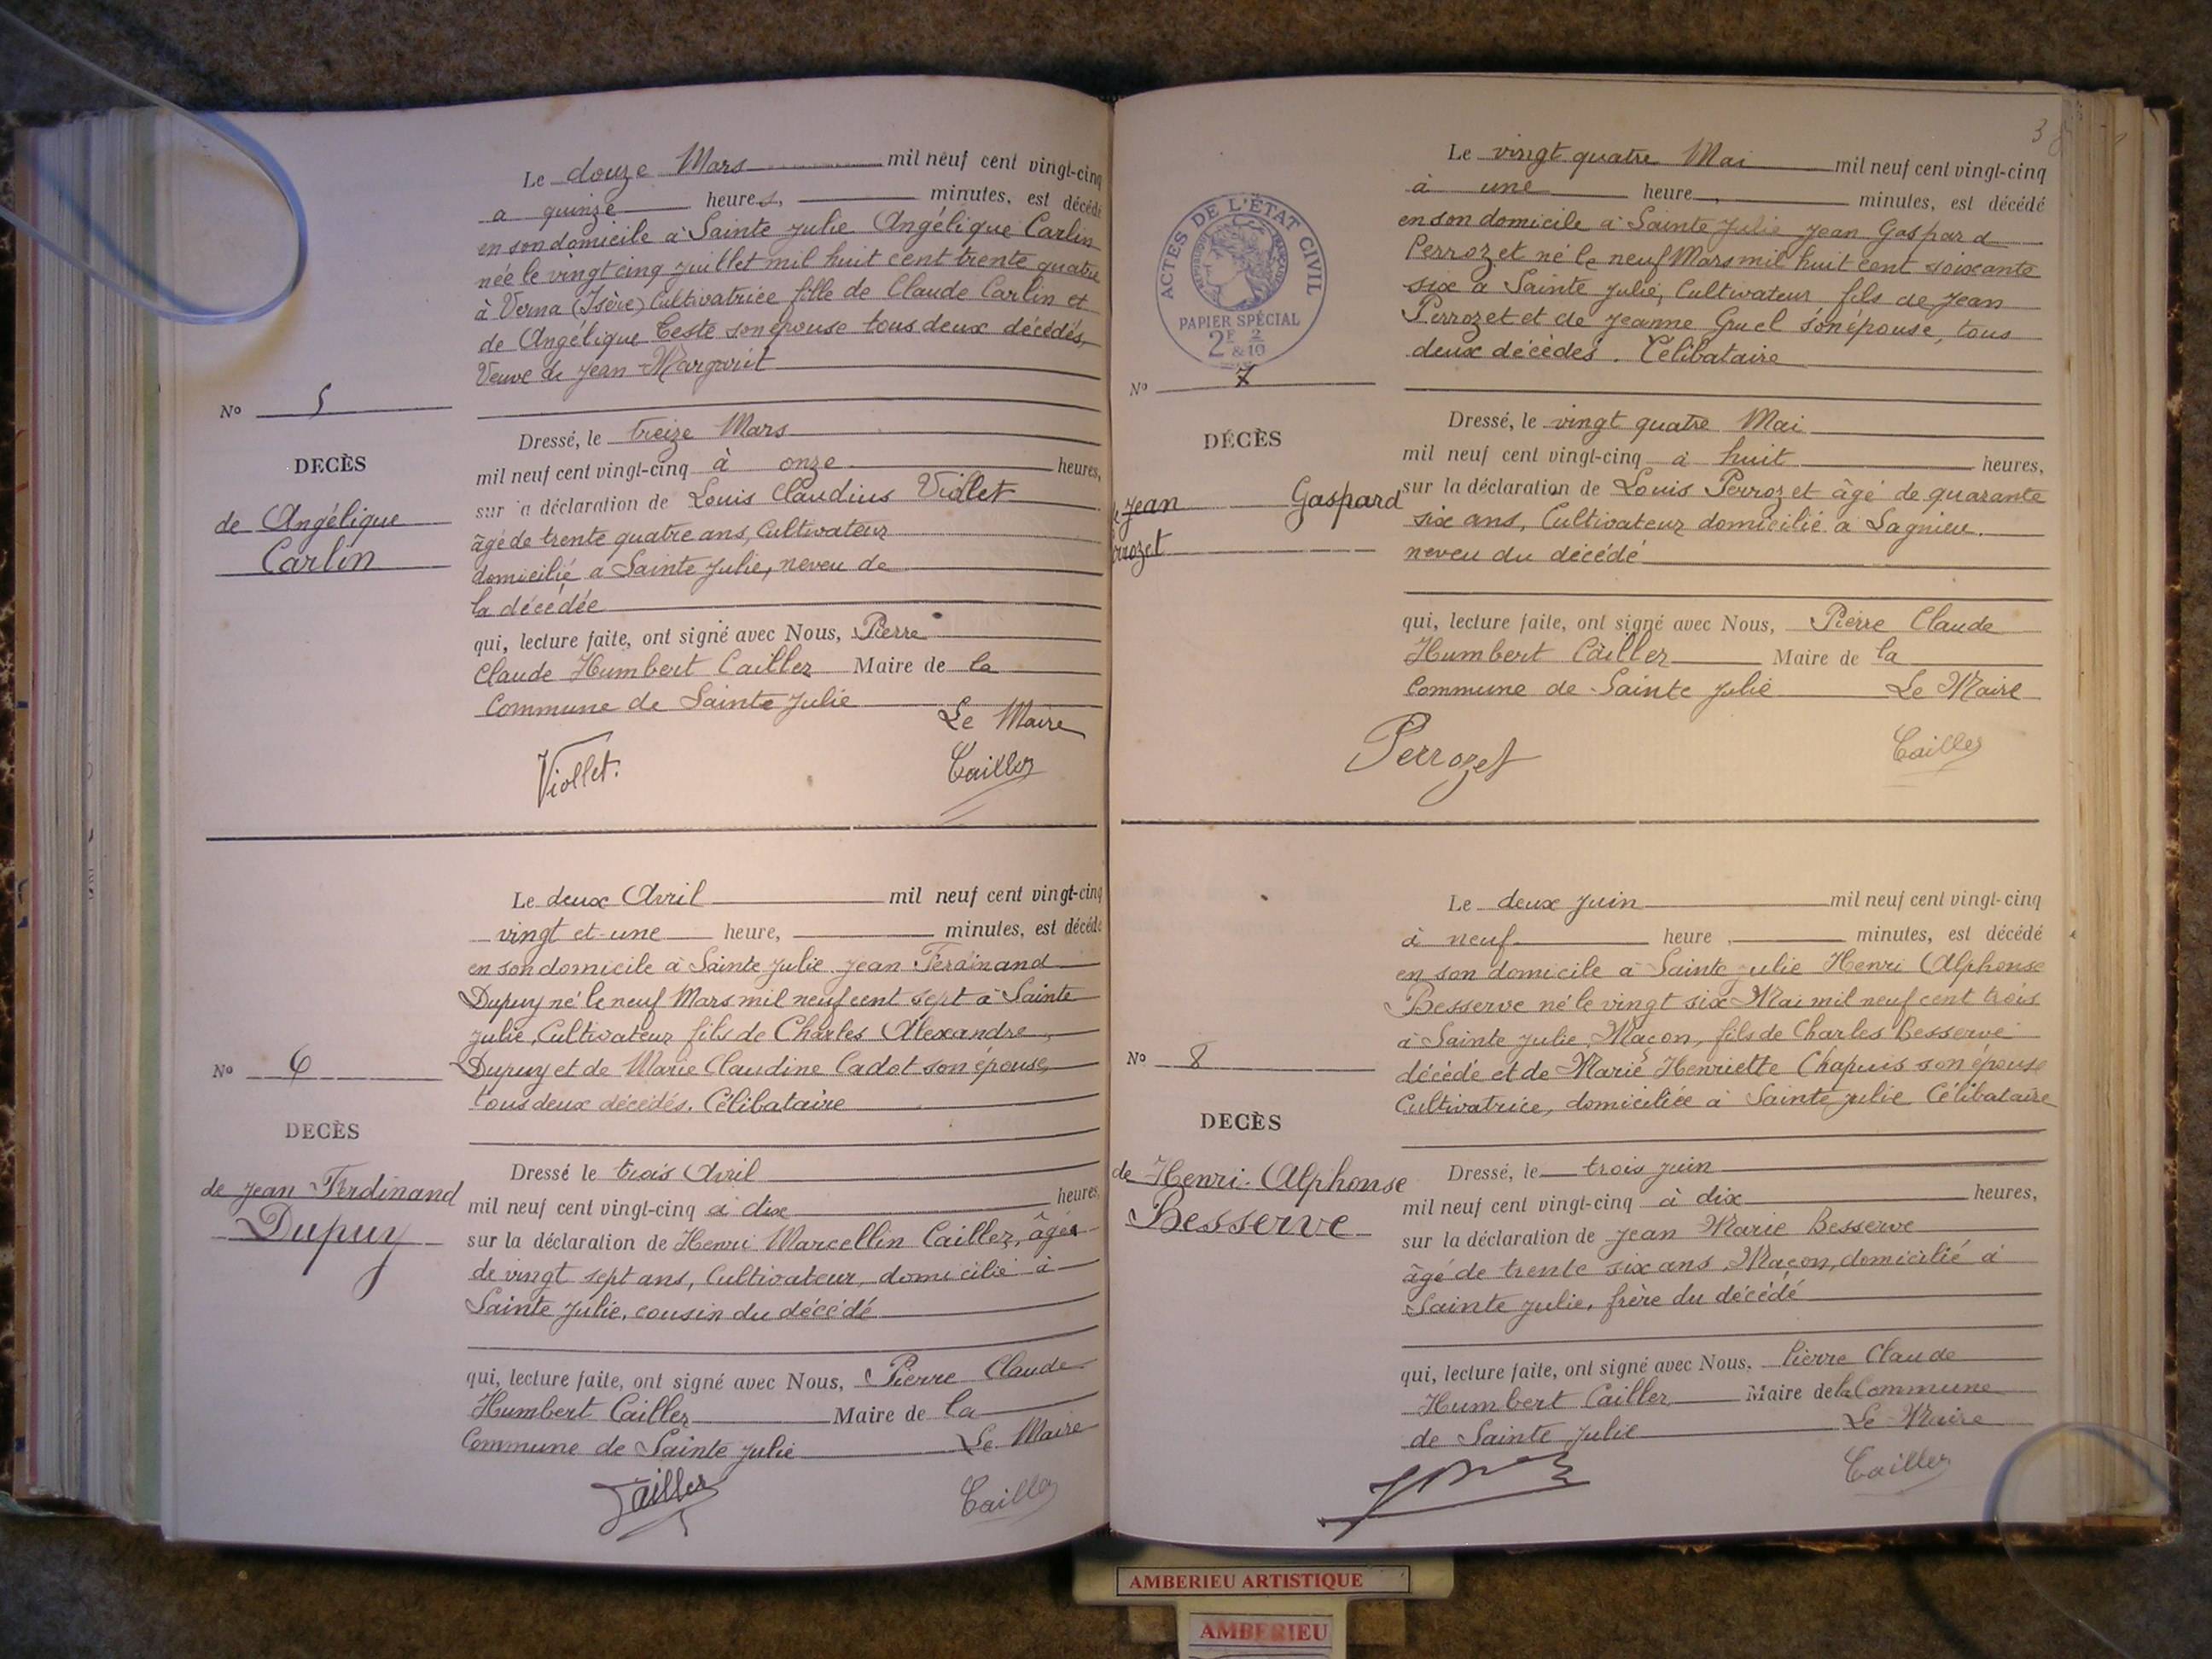 Le douze Mars mil neuf cent vingt-cinq
a quinze heures, minutes, est décédé
en son domicile à Sainte Julie Angélique Carlin
née le vingt cinq juillet mil huit cent trente quatre
à Verna (Isère) Cultivatrice fille de Claude Carlin et
de Angélique Teste son épouse tous deux décédés,
Veuve de Jean Margarit
No 5
DECÈS
de Angélique
Carlin
Dressé, le treize Mars
mil neuf cent vingt-cinq à onze heures,
sur a déclaration de Louis Claudius Viollet
âgé de trente quatre ans, Cultivateur
domicilié a Sainte Julie, neveu de
la décédée
qui, lecture faite, ont signé avec Nous, Pierre
Claude Humbert Caillez Maire de la
Commune de Sainte Julie
Le Maire
Viollet. Caillez
Le deux Avril mil neuf cent vingt-cinq
vingt et une heure, minutes, est décédé
en son domicile à Sainte Julie Jean Ferdinand
Dupuy né le neuf Mars mil neuf cent sept à Sainte
Julie, Cultivateur fils de Charles Alexandre
Dupuy et de Marie Claudine Cadot son épouse,
tous deux décédés. Célibataire
No 6
DECÈS
de Jean Ferdinand
Dupuy
Dressé le trois Avril
mil neuf cent vingt-cinq à dix heures,
sur la déclaration de Henri Marcellin Caillez, âgé
de vingt sept ans, Cultivateur, domicilié à
Sainte Julie, cousin du décédé
qui, lecture faite, ont signé avec Nous, Pierre Claude
Humbert Caillez Maire de la
Commune de Sainte Julie Le Maire
Caillez Caillez
3
Le vingt quatre Mai mil neuf cent vingt-cinq
à une heure, minutes, est décédé
en son domicile à Sainte Julie Jean Gaspard
Perrozet né le neuf Mars mil huit cent soixante
six à Sainte Julie, Cultivateur fils de Jean
Perrozet et de Jeanne Gruel son épouse, tous
deux décédés. Célibataire
ACTES DE L'ÉTAT CIVIL
RÉPUBLIQUE FRANÇAISE
PAPIER SPÉCIAL
2F & 2/10
No 7
DÉCÈS
Jean Gaspard
rrozet
Dressé, le vingt quatre Mai
mil neuf cent vingt-cinq à huit heures,
sur la déclaration de Louis Perrozet âgé de quarante
six ans, Cultivateur domicilié à Lagnieu.
neveu du décédé
qui, lecture faite, ont signé avec Nous, Pierre Claude
Humbert Caillez Maire de la
Commune de Sainte Julie Le Maire
Perrozet Caillez
Le deux Juin mil neuf cent vingt-cinq
à neuf heure, minutes, est décédé
en son domicile à Sainte Julie Henri Alphonse
Besserve né le vingt six Mai mil neuf cent trois
à Sainte Julie, Maçon, fils de Charles Besserve
décédé et de Marie Henriette Chapuis son épouse
Cultivatrice, domiciliée à Sainte Julie Célibataire
No 8
DECÈS
de Henri-Alphonse
Besserve
Dressé, le trois Juin
mil neuf cent vingt-cinq à dix heures,
sur la déclaration de Jean Marie Besserve
âgé de trente six ans, Maçon, domicilié à
Sainte Julie, frère du décédé
qui, lecture faite, ont signé avec Nous, Pierre Claude
Humbert Caillez Maire de la Commune
de Sainte Julie Le Maire
Caillez
AMBERIEU ARTISTIQUE
AMBERIEU